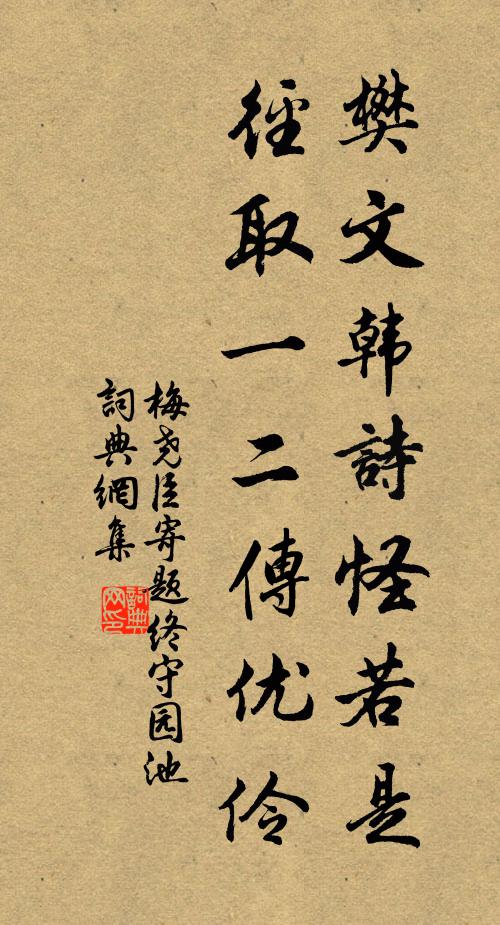 樊文韩詩怪若是
徑取一二傳优伶
梅尧臣寄题终守园池
詞典網集
詞典
网印